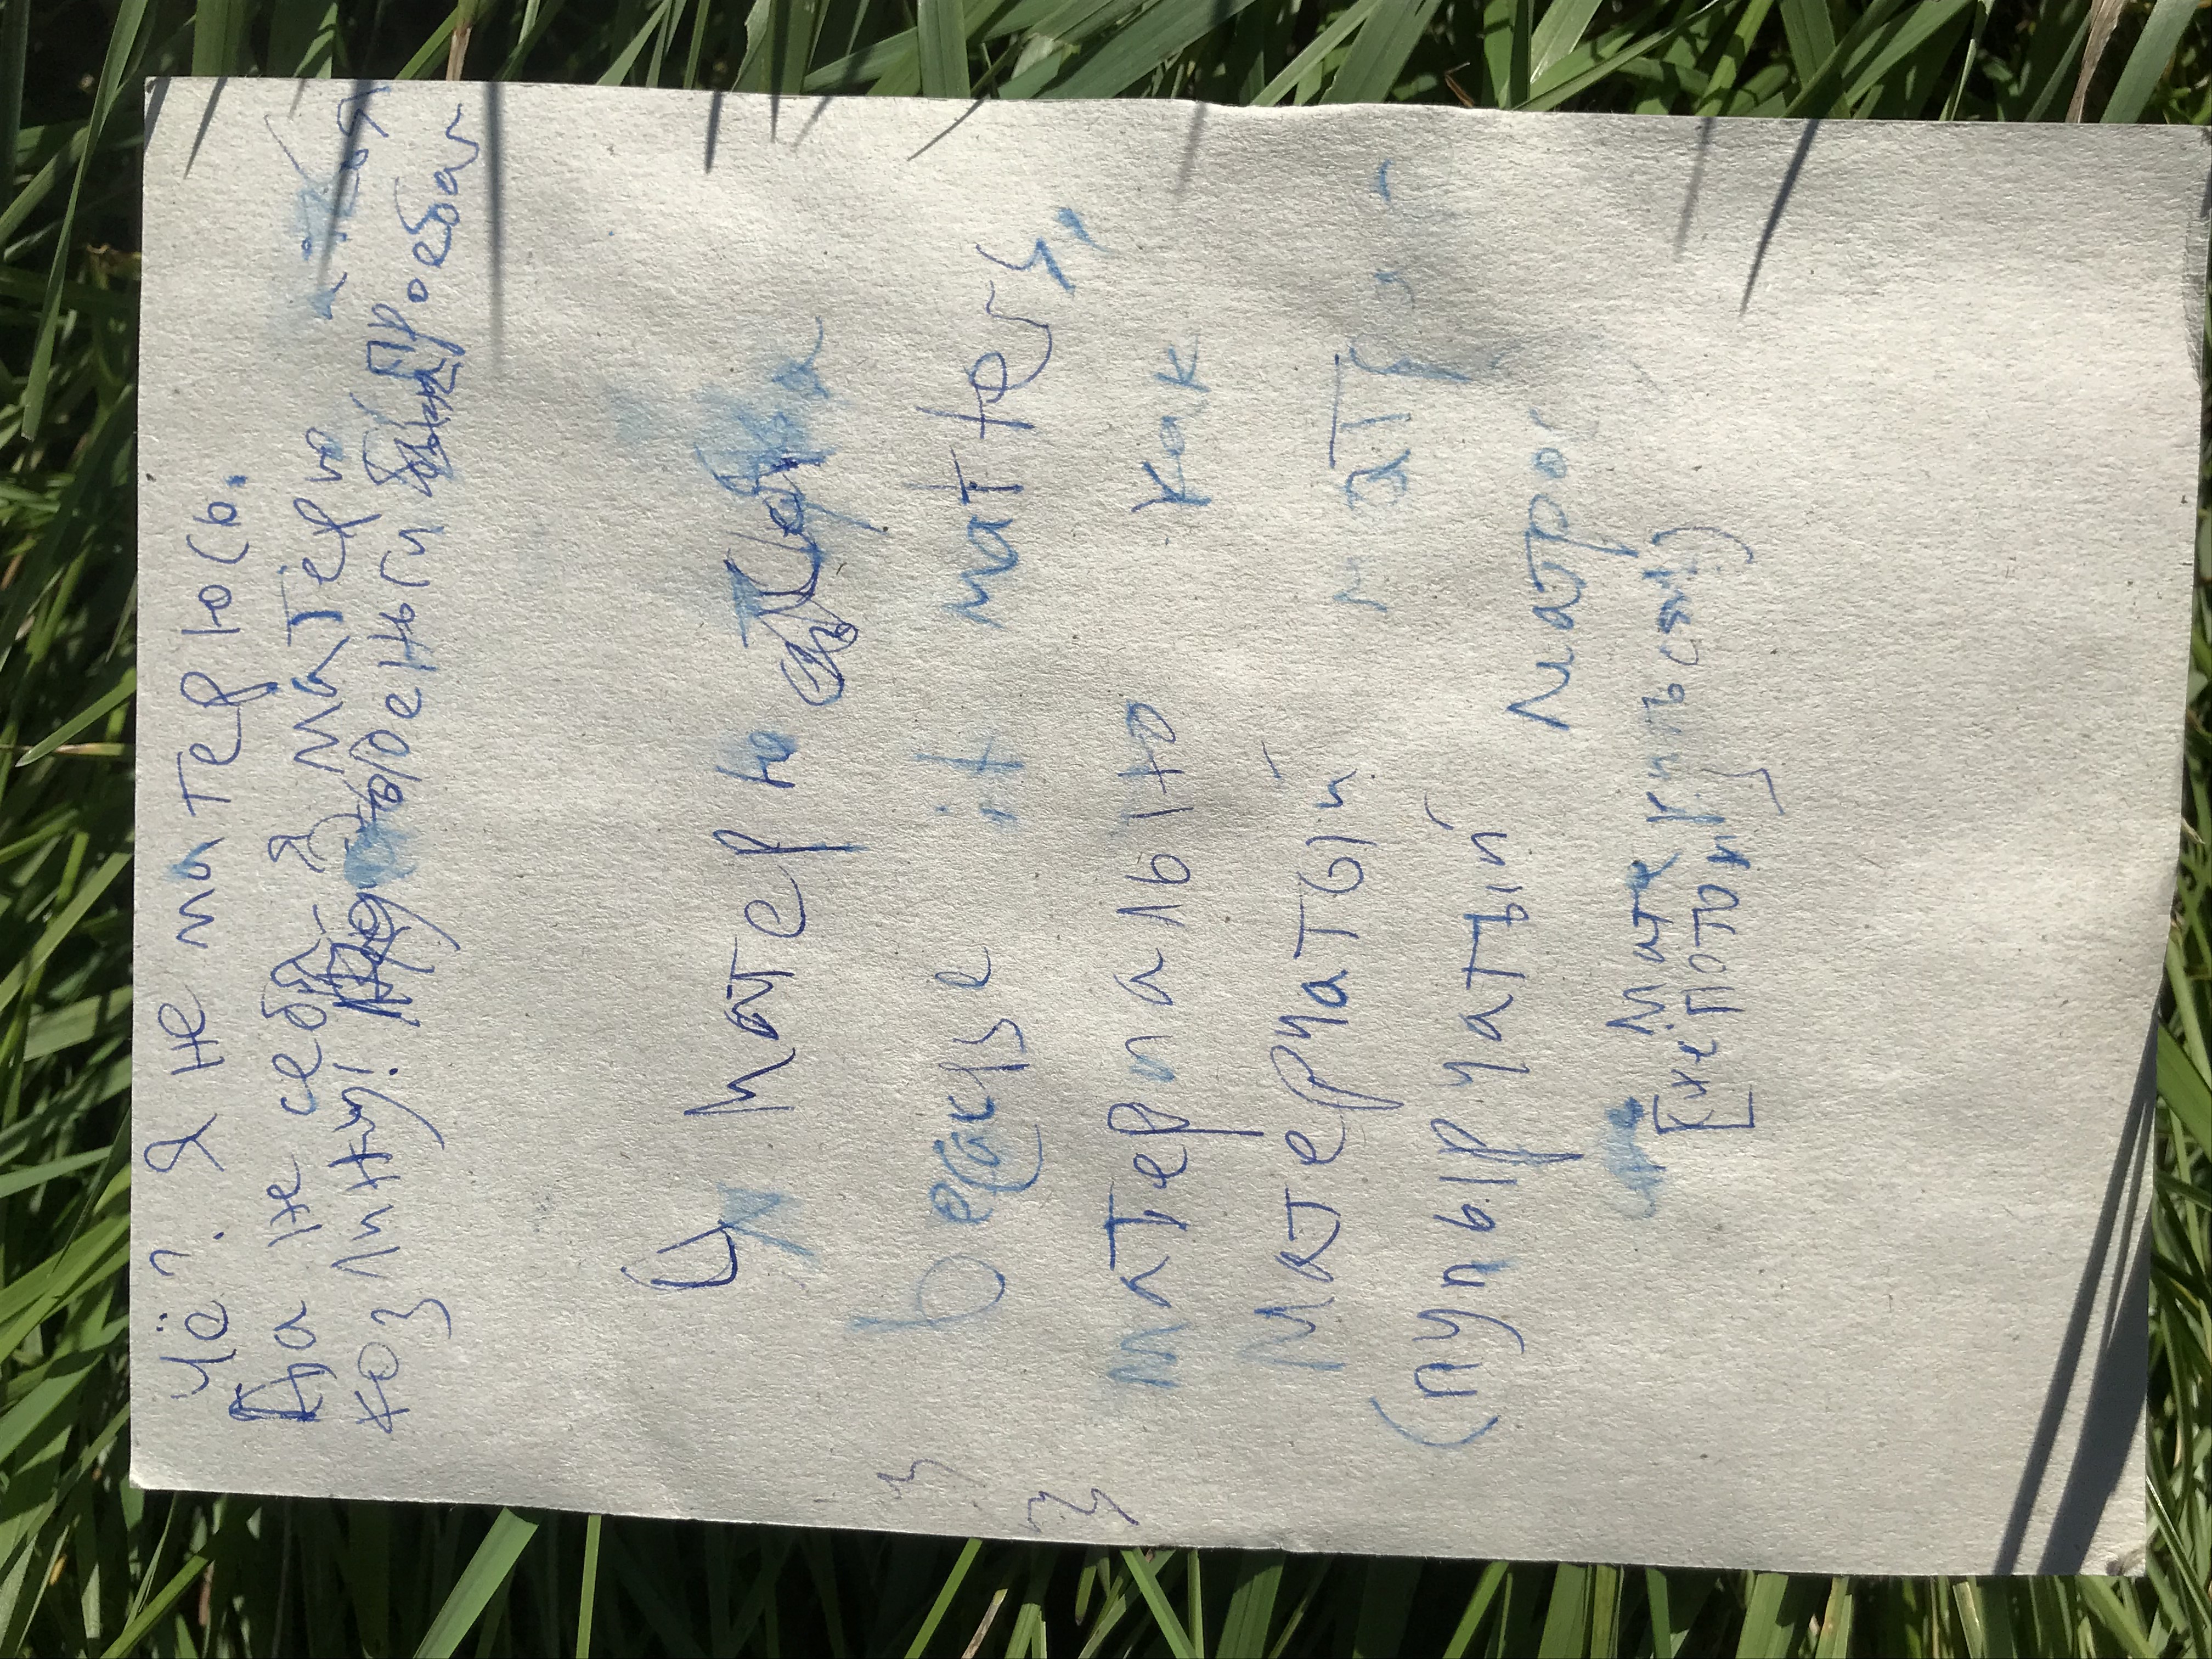 Чё? Я не матерюсь.
Да не себя я матерю, а тебя
козлину! деньги проебал
Я матерю тебя
because it matters,
материально как
Матерчатый матрос
(пупырчатый
матрос
Материться!)
[не потом]